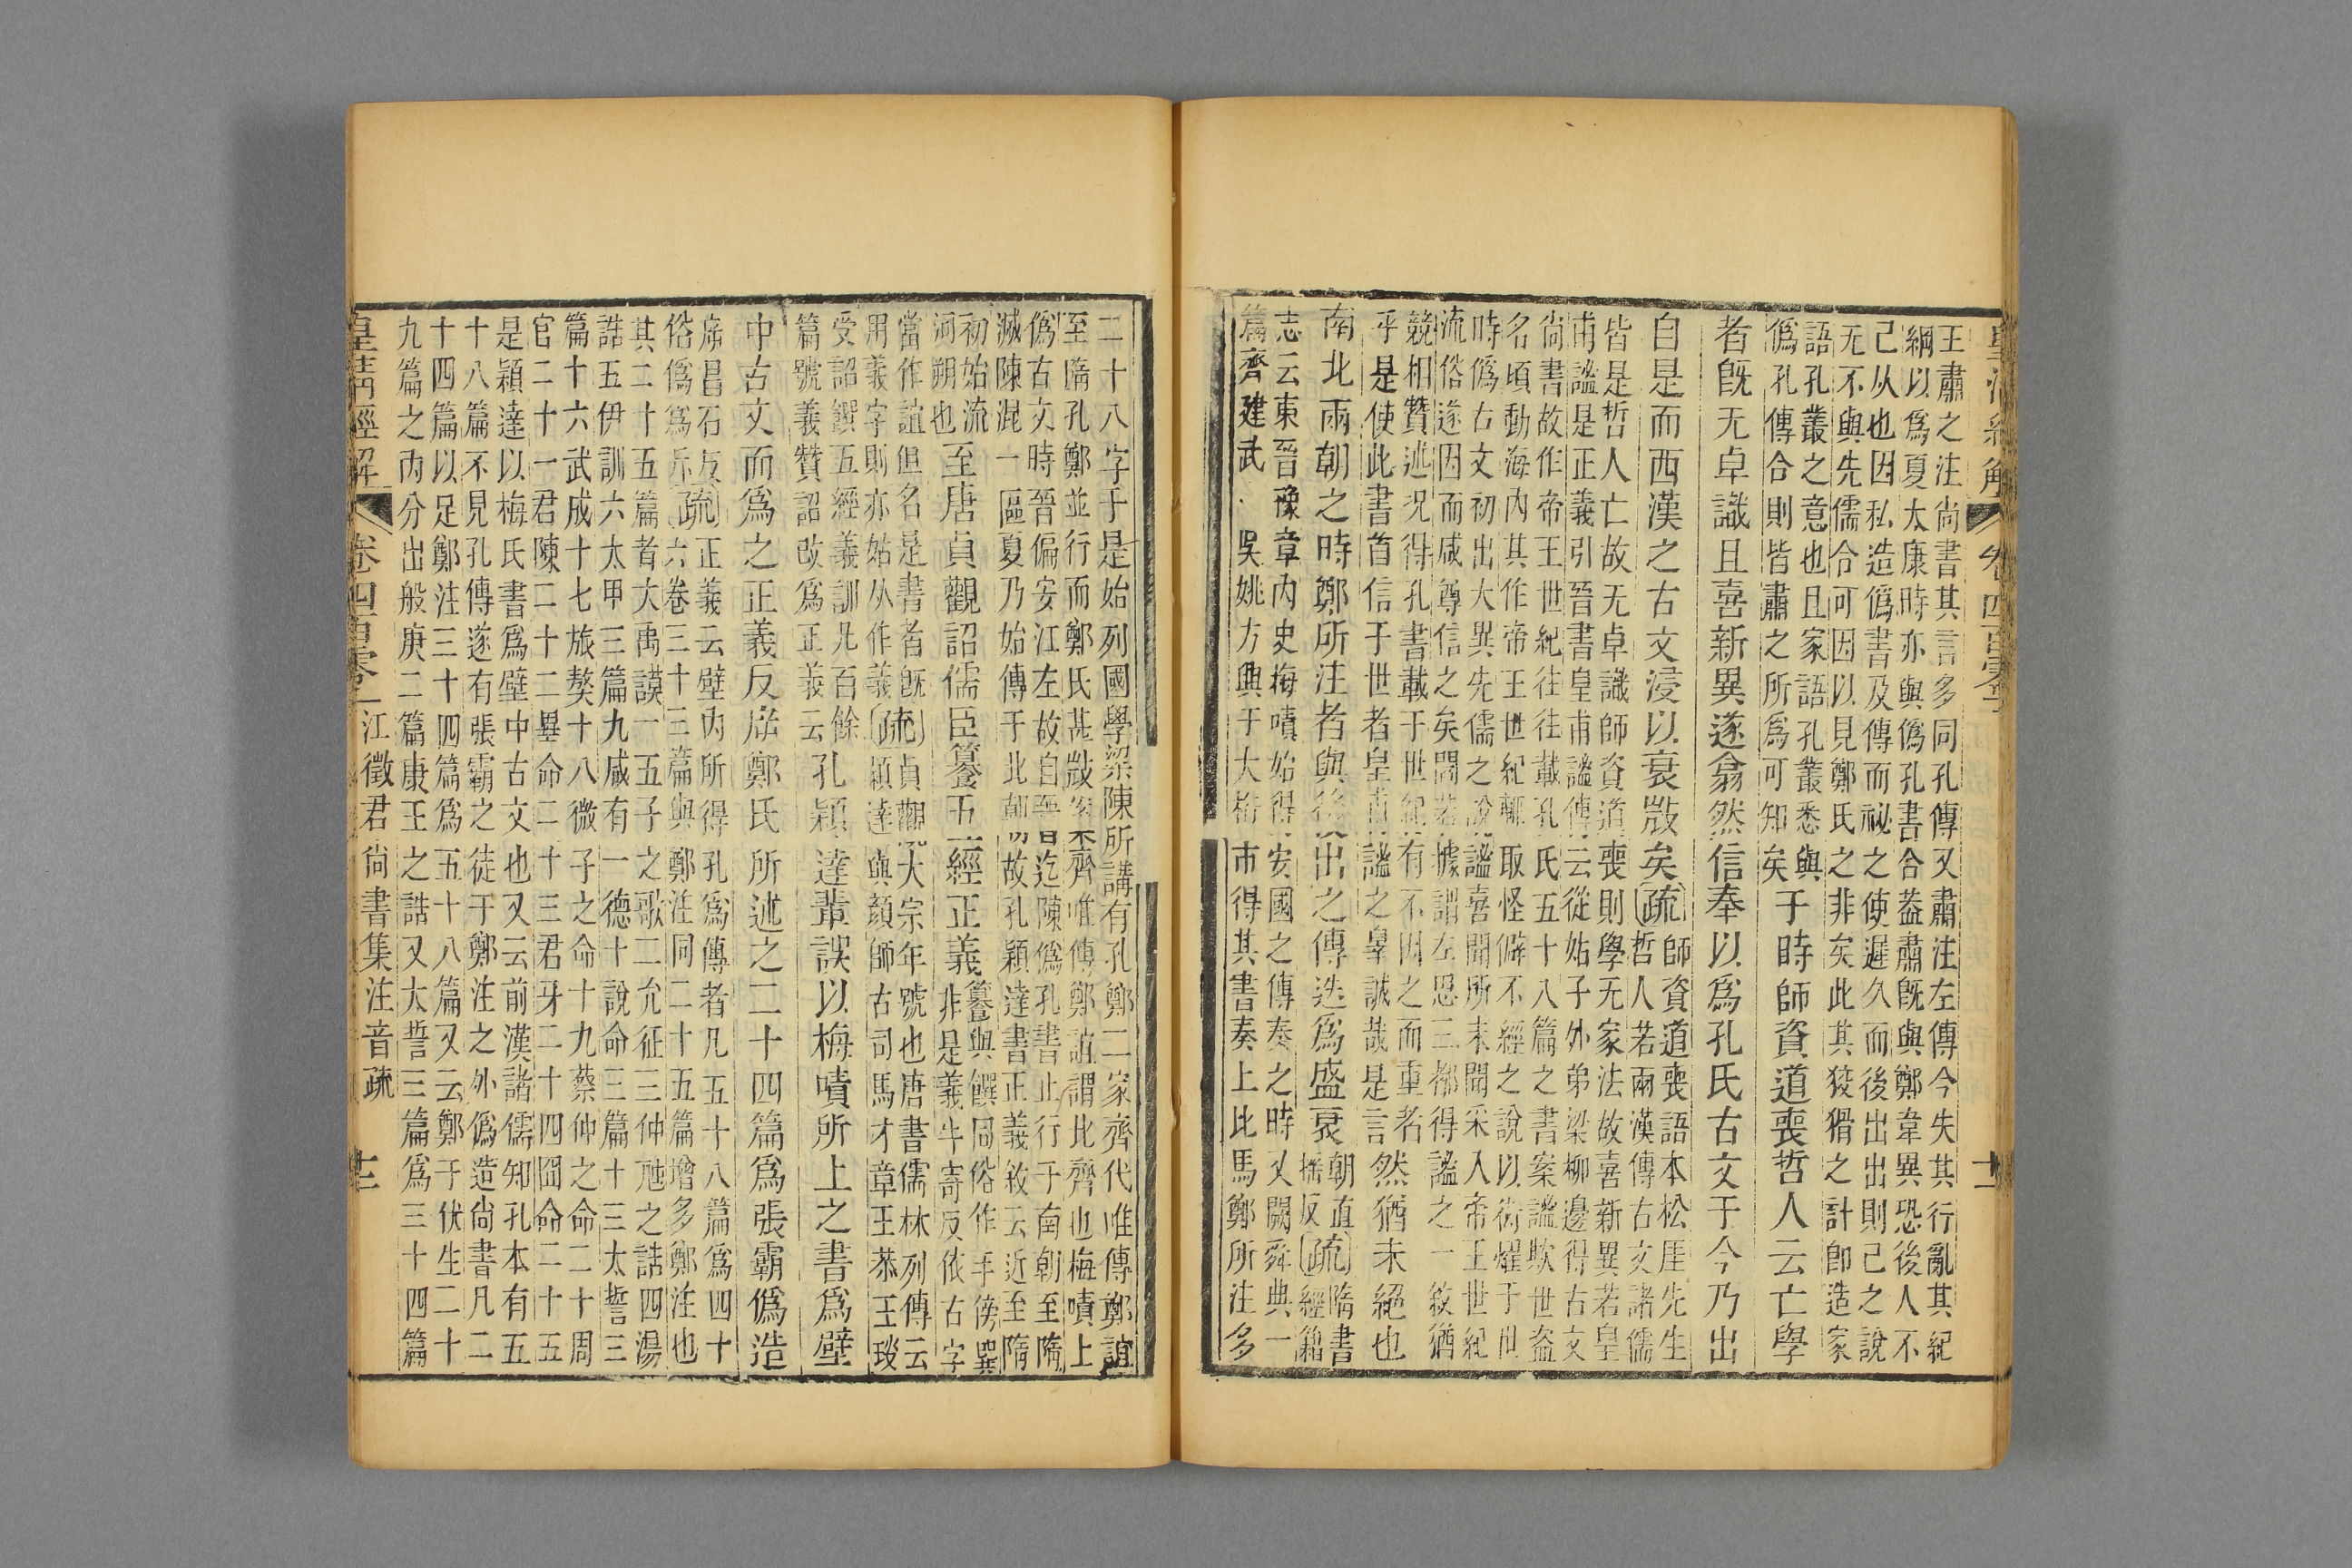 皇清經解
卷四百零
十二
王肅之注尚書其言多同孔傳又肅注左傳今失其行亂其紀
綱以爲夏太康時亦與僞孔書合葢肅旣與鄭韋異恐後人不
己从也因私造僞書及傳而祕之使遲久而後出出則己之說
无不與先儒合可因以見鄭氏之非矣此其狡猾之計卽造家
語孔叢之意也且家語孔叢悉與
僞孔傳合則皆肅之所爲可知矣
于時師資道喪哲人云亡學
者旣无卓識且喜新異遂翕然信奉以爲孔氏古文于今乃出
自是而西漢之古文浸以衰敚矣
疏
師資道喪語本松厓先生
哲人若兩漢傳古文諸儒
皆是哲人亡故无卓識師資道喪則學无家法故喜新異若皇
甫謐是正義引晉書皇甫謐傳云從姑子外弟梁柳邊得古文
尚書故作帝王世紀往往載孔氏五十八篇之書案謐欺世盜
名頃動海內其作帝王世紀輒取怪僻不經之說以衒燿于世
時僞古文初出大異先儒之說謐喜聞所未聞采入帝王世紀
流俗遂因而咸尊信之矣閻若據謂左思三都得謐之一敘猶
競相贊述況得孔書載于世紀有不因之而重者
乎是使此書首信于世者皇甫謐之辠誠哉是言
然猶未絕也
南北兩朝之時鄭所注者與後出之傳迭爲盛衰
朝直
搖反
疏
隋書
經籍
志云東晉豫章內史梅嘖始得安國之傳奏之時又闕舜典一
篇齊建武 吳姚方興于大桁市得其書奏上比馬鄭所注多
二十八字于是始列國學梁陳所講有孔鄭二家齊代唯傳鄭誼
至隋孔鄭並行而鄭氏甚敚案齊唯傳鄭誼謂北齊也梅嘖上
僞古文時晉偏安江左故自晉迄陳僞孔書止行于南朝至隋
滅陳混一區夏乃始傳于北朝故孔穎達書正義敘云近至隋
初始流
河朔也
至唐貞觀詔儒臣纂五經正義
纂與饌同俗作手傍巽
非是義牛寄反依古字
當作誼但名是書者旣
用義字則亦姑从作義
疏
貞觀大宗年號也唐書儒林列傳云
穎達與顏師古司馬才章王恭王琰
受詔譔五經義訓凡百餘
篇號義贊詔改爲正義云
孔穎達輩誤以梅嘖所上之書爲壁
中古文而爲之正義反㡿鄭氏所述之二十四篇爲張霸僞造
㡿昌石反
俗爲斥
疏
正義云壁內所得孔爲傳者凡五十八篇爲四十
六卷三十三篇與鄭注同二十五篇增多鄭注也
其二十五篇者大禹謨一五子之歌二允征三仲虺之誥四湯
誥五伊訓六太甲三篇九咸有一德十說命三篇十三太誓三
篇十六武成十七旅獒十八微子之命十九蔡仲之命二十周
官二十一君陳二十二畢命二十三君牙二十四囧命二十五
是穎達以梅氏書爲壁中古文也又云前漢諸儒知孔本有五
十八篇不見孔傳遂有張霸之徒于鄭注之外僞造尚書凡二
十四篇以足鄭注三十四篇爲五十八篇又云鄭于伏生二十
九篇之內分出般庚二篇康王之誥又大誓三篇爲三十四篇
皇清經解
卷四百零一
江徵君尚書集注音疏
十三